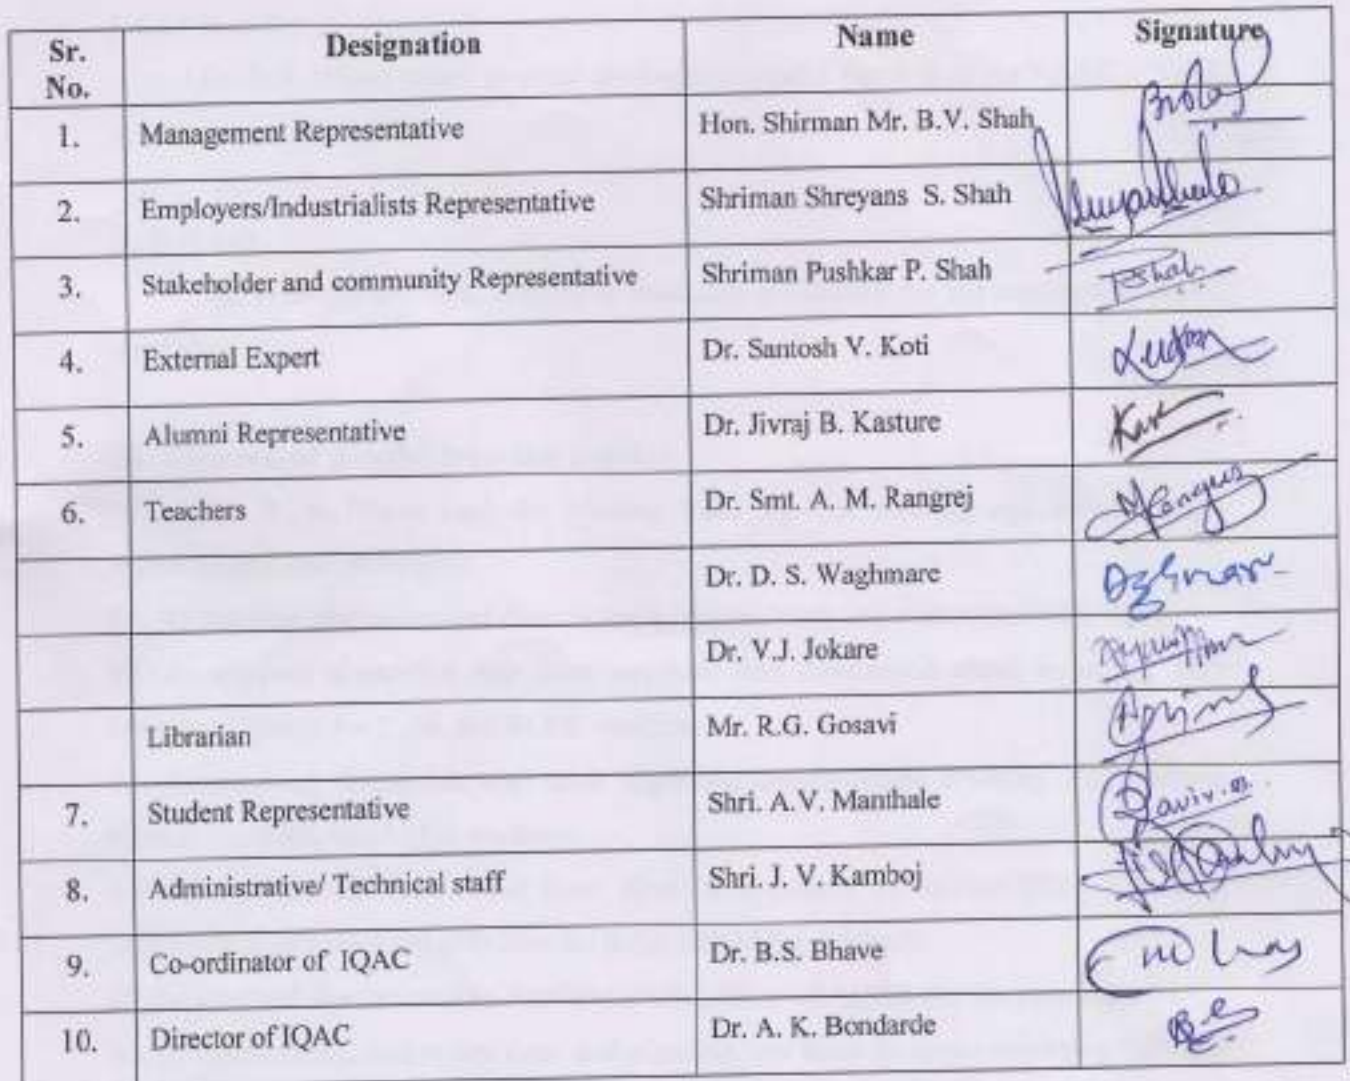 Sr. No. Designation Name Signature
1. Management Representative Hon. Shirman Mr. B.V. Shah
2. Employers/Industrialists Representative Shriman Shreyans S. Shah
3. Stakeholder and community Representative Shriman Pushkar P. Shah
4. External Expert Dr. Santosh V. Koti
5. Alumni Representative Dr. Jivraj B. Kasture
6. Teachers Dr. Smt. A. M. Rangrej
Dr. D. S. Waghmare
Dr. V.J. Jokare
Librarian Mr. R.G. Gosavi
7. Student Representative Shri. A.V. Manthale
8. Administrative/ Technical staff Shri. J. V. Kamboj
9. Co-ordinator of IQAC Dr. B.S. Bhave
10. Director of IQAC Dr. A. K. Bondarde